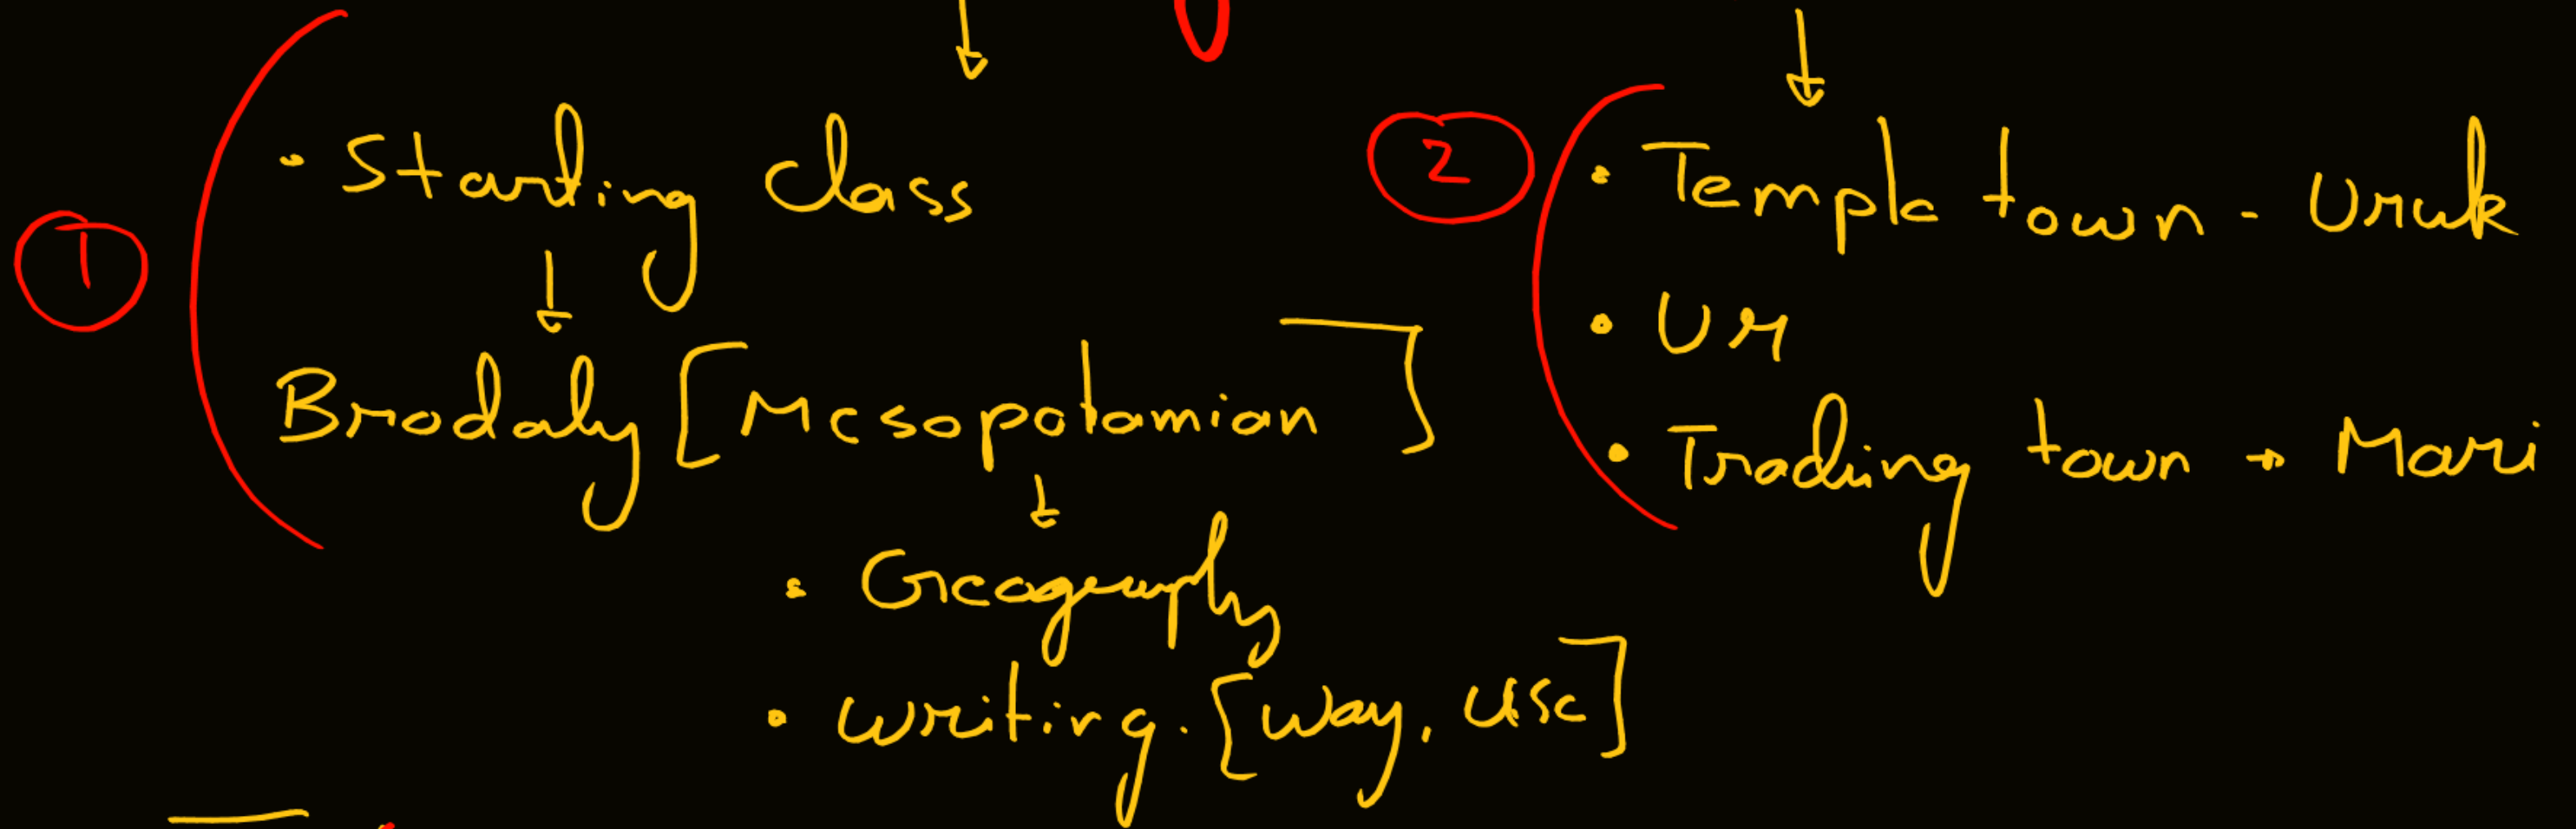 ①
• Starting class
↓
Brodaly [Mesopotamian]
↓
• Geography
• writing. [way, use]
②
• Temple town - Uruk
• Ur
• Trading town → Mari